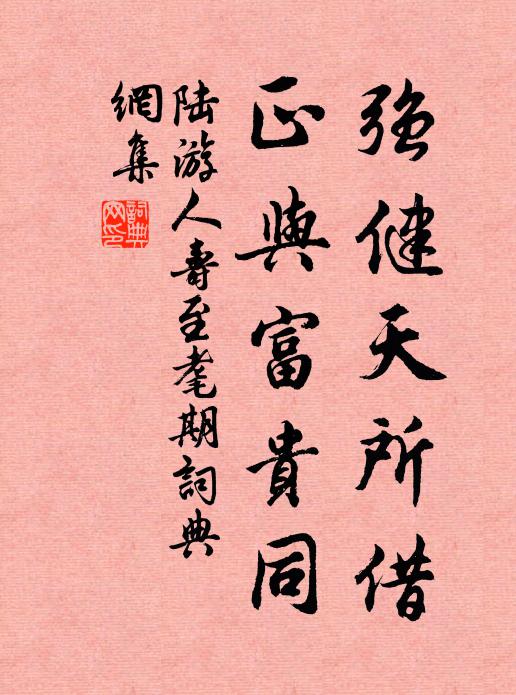 強健天所借
正與富貴同
陆游人壽至耄期詞典
網集
詞典
网印